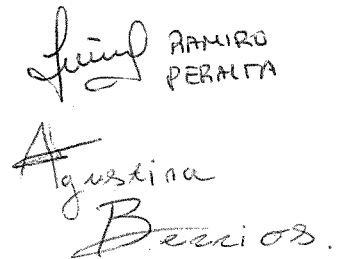 RAMIRO
PERALTA
Agustina
Berrios.